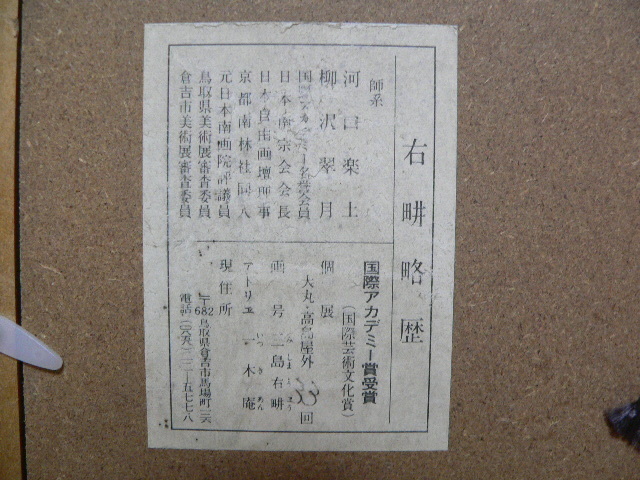 右畊略歴
師系
河口楽土
柳沢翠月
国際アカデミー名誉会員
日本南宗会会長
日本自由画壇理事
京都南林社同人
元日本南画院評議員
鳥取県美術展審査委員
倉吉市美術展審査委員
国際アカデミー賞受賞
(国際芸術文化賞)
個展
大丸・高島屋外33回
画号 三島右畊
アトリエ 一木庵
いつきあん
現住所
〒682 鳥取県倉吉市馬場町